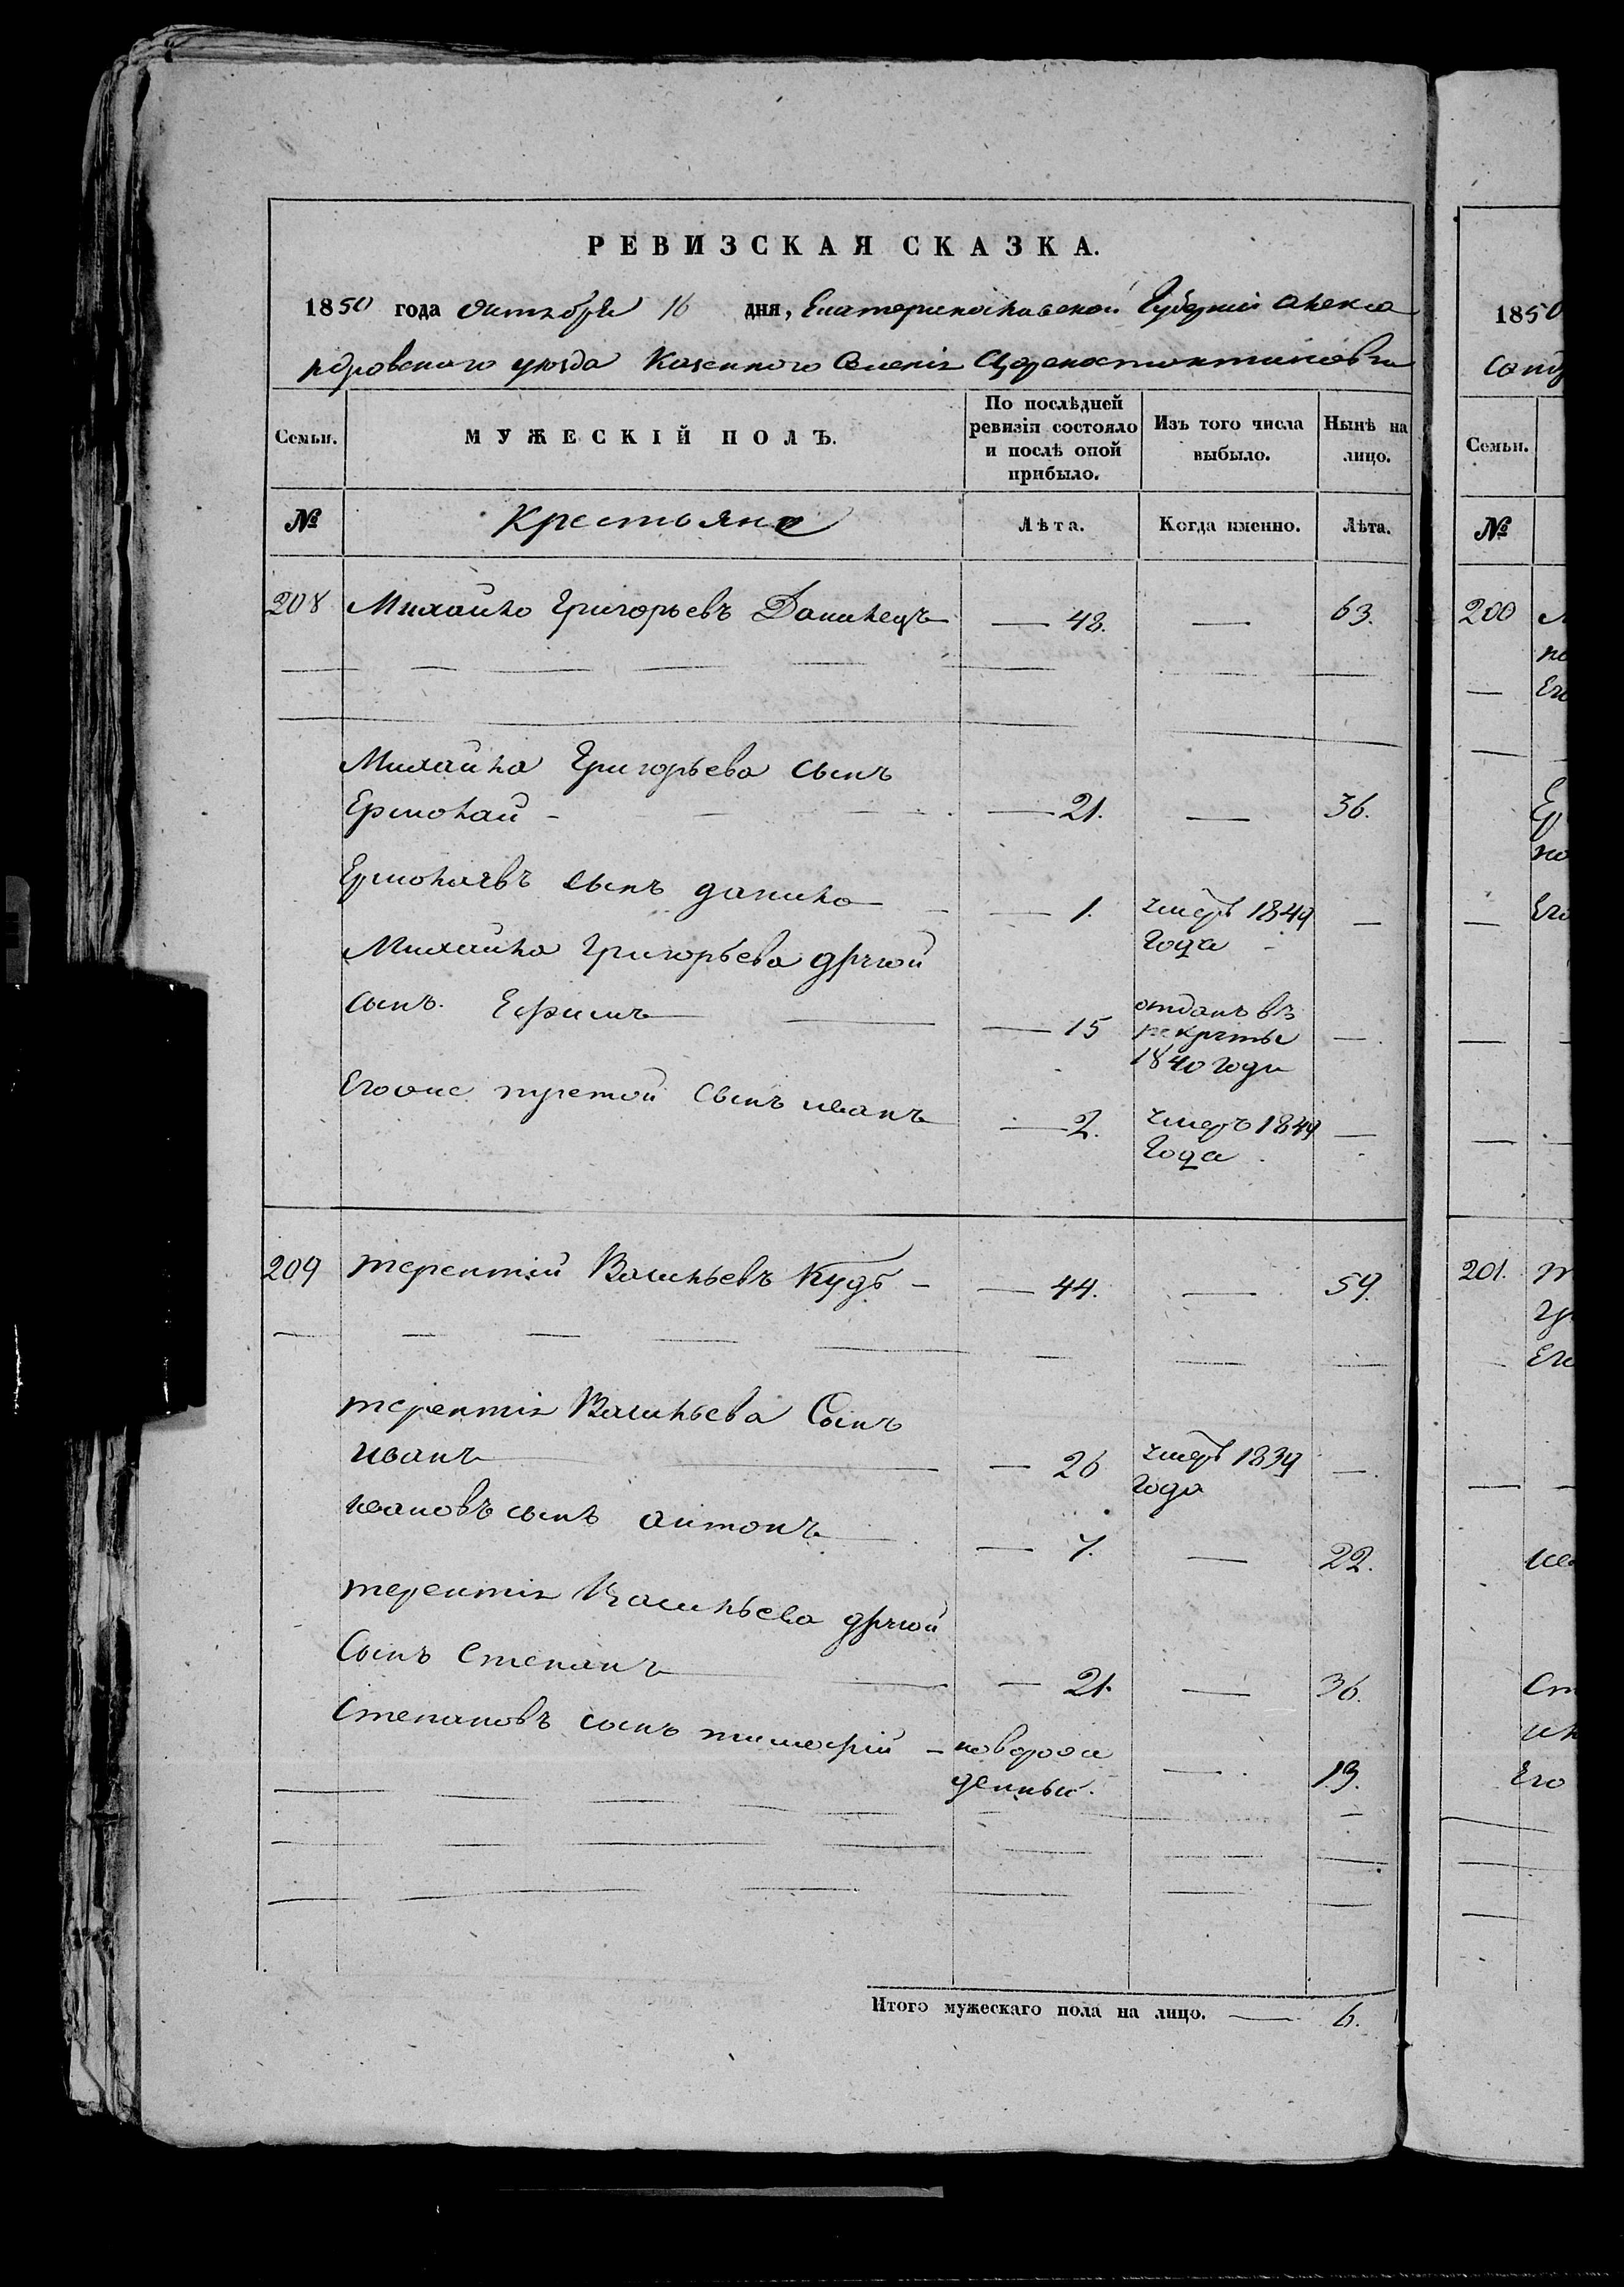 РЕВИЗСКАЯ СКАЗКА.
1850 года Октября 16 дня, Екатеринославской Губерніи Алекса
ндровского уѣзда Казенного Селенія Цареконстонтиновки
Семьи. МУЖЕСКІЙ ПОЛЪ. По послѣдней ревизіи состояло и послѣ оной прибыло. Изъ того числа выбыло. Нынѣ на лицо.
№ Крестьяне Лѣта. Когда именно. Лѣта.
208 Михайло Григорьевъ Данилецъ — 48. — 63.
Михайла Григорьева сынъ
Ермолай — 21. — 36.
Ермолаевъ сынъ данило — 1. умеръ 1849 —
года
Михайла Григорьева другой
сынъ Ефимъ — 15 отданъ въ рекруты 1840 года —
Егоже третой сынъ иванъ — 2. умеръ 1849 —
года
209 терентій Васильевъ Кудь — 44. — 59.
терентія Васильева Сынъ
иванъ — 26 умеръ 1839 —
года
ивановъ сынъ антонъ — 7. — 22.
терентія Васильева другой
Сынъ Степанъ — 21. — 36.
Степановъ сынъ тимофій — новорож
денный. — 13.
Итого мужескаго пола на лицо. — 6.
1850
Семьи.
№
200
Его
201.
Его